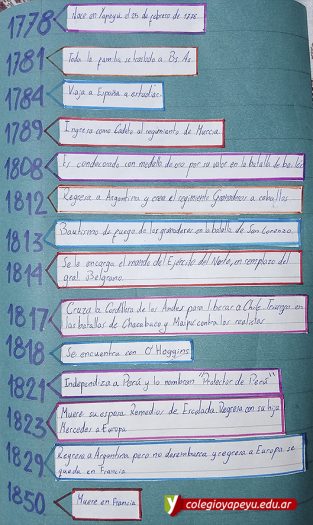 1778
Nace en Yapeyú el 25 de febrero de 1778.
1781
Toda la familia se traslada a Bs. As.
1784
Viaja a España a estudiar.
1789
Ingresa como Cadete al regimiento de Murcia.
1808
Es condecorado con medalla de oro por su valor en la batalla de bailén
1812
Regresa a Argentina y crea el regimiento Granaderos a caballos
1813
Bautismo de fuego de los granaderos en la batalla de San Lorenzo.
1814
Se le encarga el mando del Ejército del Norte, en remplazo del
gral. Belgrano.
1817
Cruza la Cordillera de los Andes para liberar a Chile. Triunga en
las batallas de Chacabuco y Maipú contra los realistas
1818
Se encuentra con O'Higgins
1821
Independiza a Perú y lo nombran "Protector de Perú"
1823
Muere su esposa Remedios de Escalada. Regresa con su hija
Mercedes a Europa
1829
Regresa a Argentina pero no desembarca y regresa a Europa se
queda en Francia
1850
Muere en Francia
colegioyapeyu.edu.ar